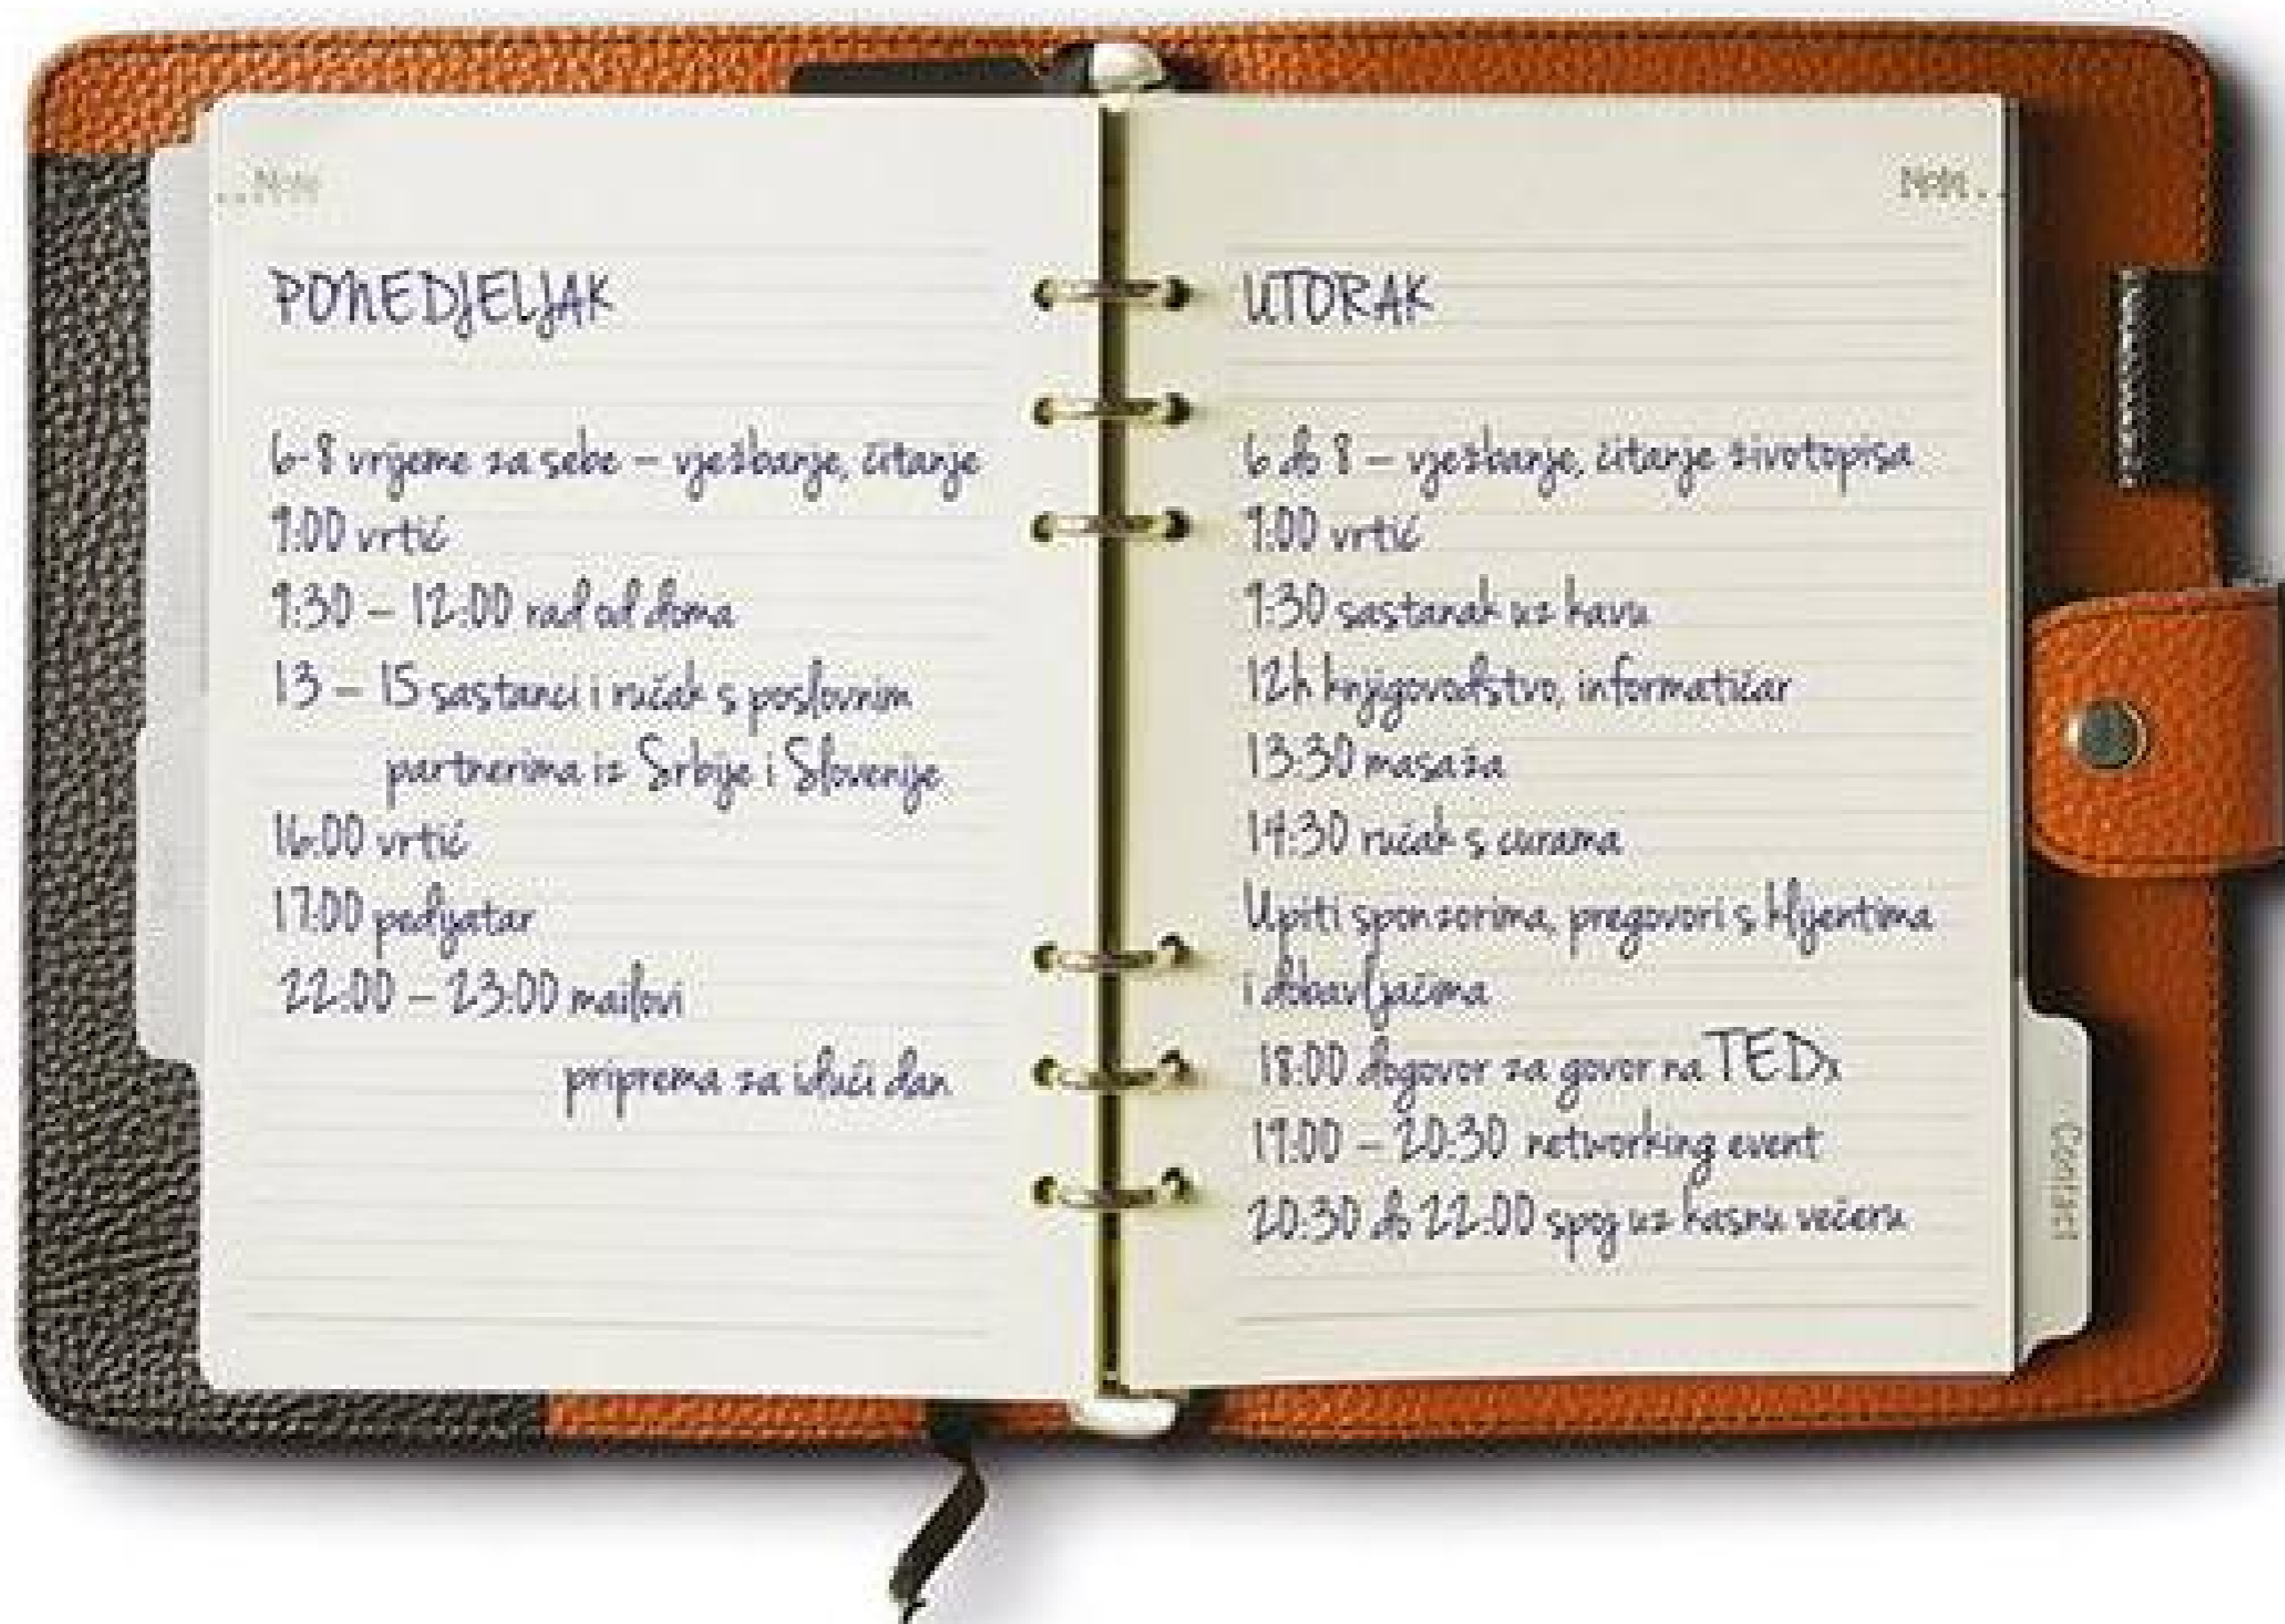 ..Note
PONEDJELJAK
6-8 vrijeme za sebe – vježbanje, čitanje
9:00 vrtić
9:30 – 12:00 rad od doma
13 – 15 sastanci i ručak s poslovnim
partnerima iz Srbije i Slovenije
16:00 vrtić
17:00 pedijatar
22:00 – 23:00 mailovi
priprema za idući dan
Note..
UTORAK
6 do 8 – vježbanje, čitanje životopisa
9:00 vrtić
9:30 sastanak uz kavu
12h knjigovodstvo, informatičar
13:30 masaža
14:30 ručak s curama
Upiti sponzorima, pregovori s klijentima
i dobavljačima
18:00 dogovor za govor na TEDx
19:00 – 20:30 networking event
20:30 do 22:00 spoj uz kasnu večeru
Contact